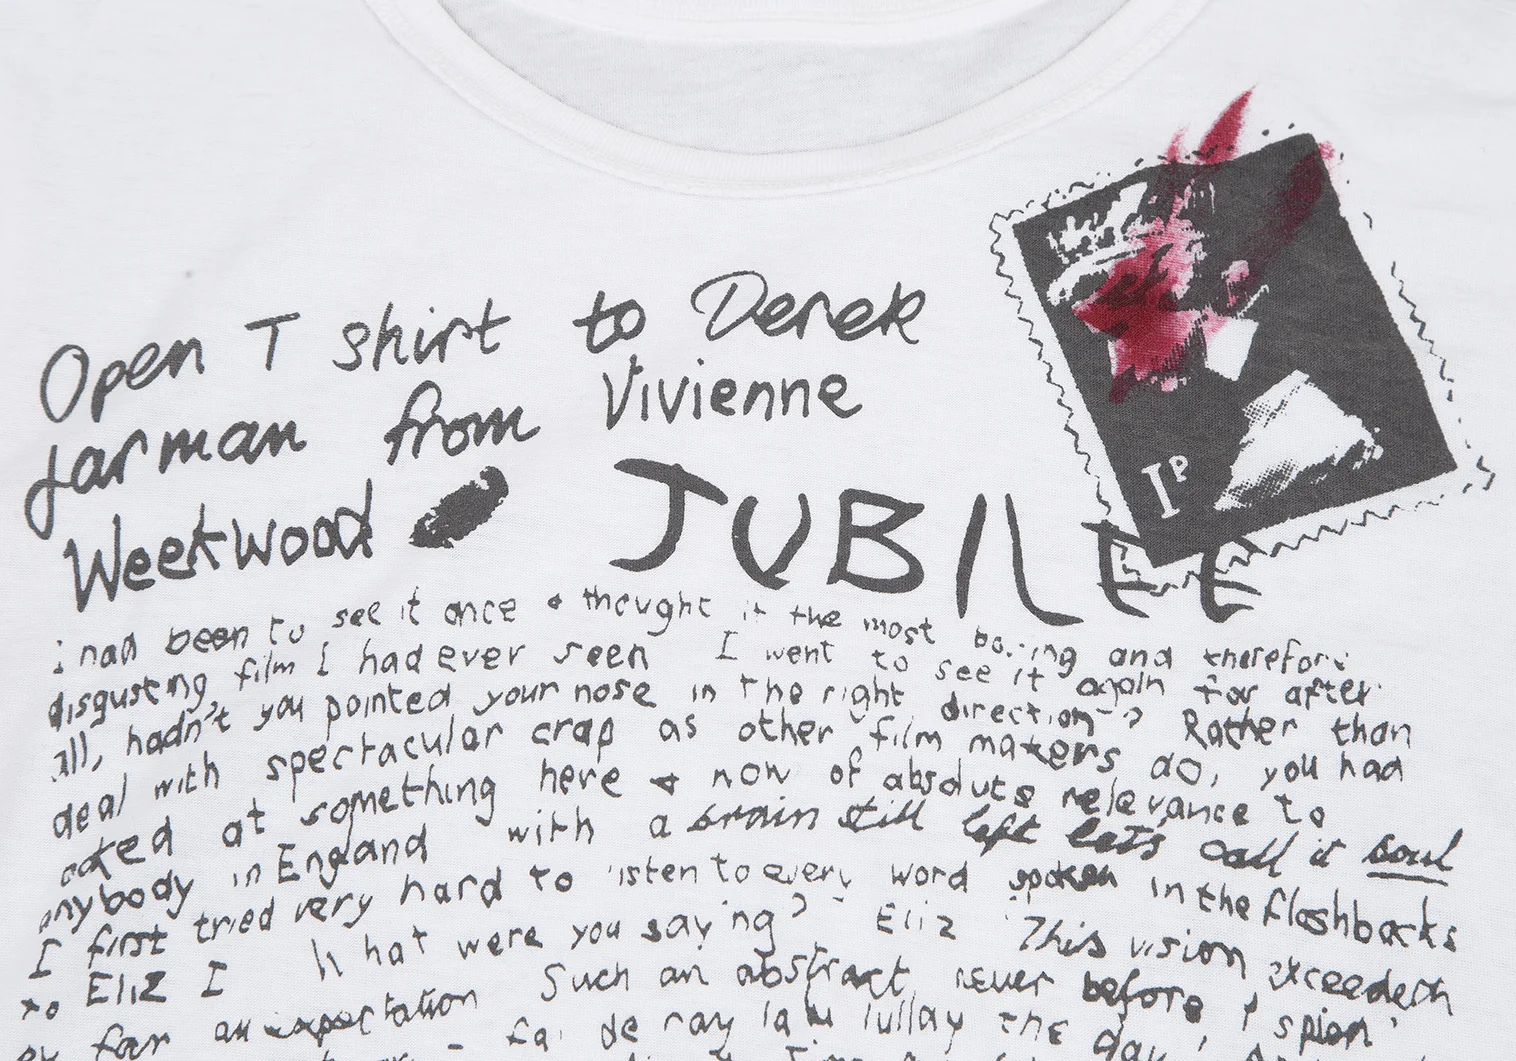 Open T shirt to Derek
Jarman from Vivienne
Westwood JUBILEE
1P
i had been to see it once & thought it the most boring and therefore
disgusting film I had ever seen I went to see it again for after
all, hadn't you pointed your nose in the right direction? Rather than
deal with spectacular crap as other film makers do, you had
looked at something here & now of absolute relevance to
anybody in England with a brain still left lets call it soul
I first tried very hard to listen to every word spoken in the flashbacks
to Eliz I What were you saying? Eliz This vision exceedeth
by far an expectation Such an abstract never before I spion'
lullay the day